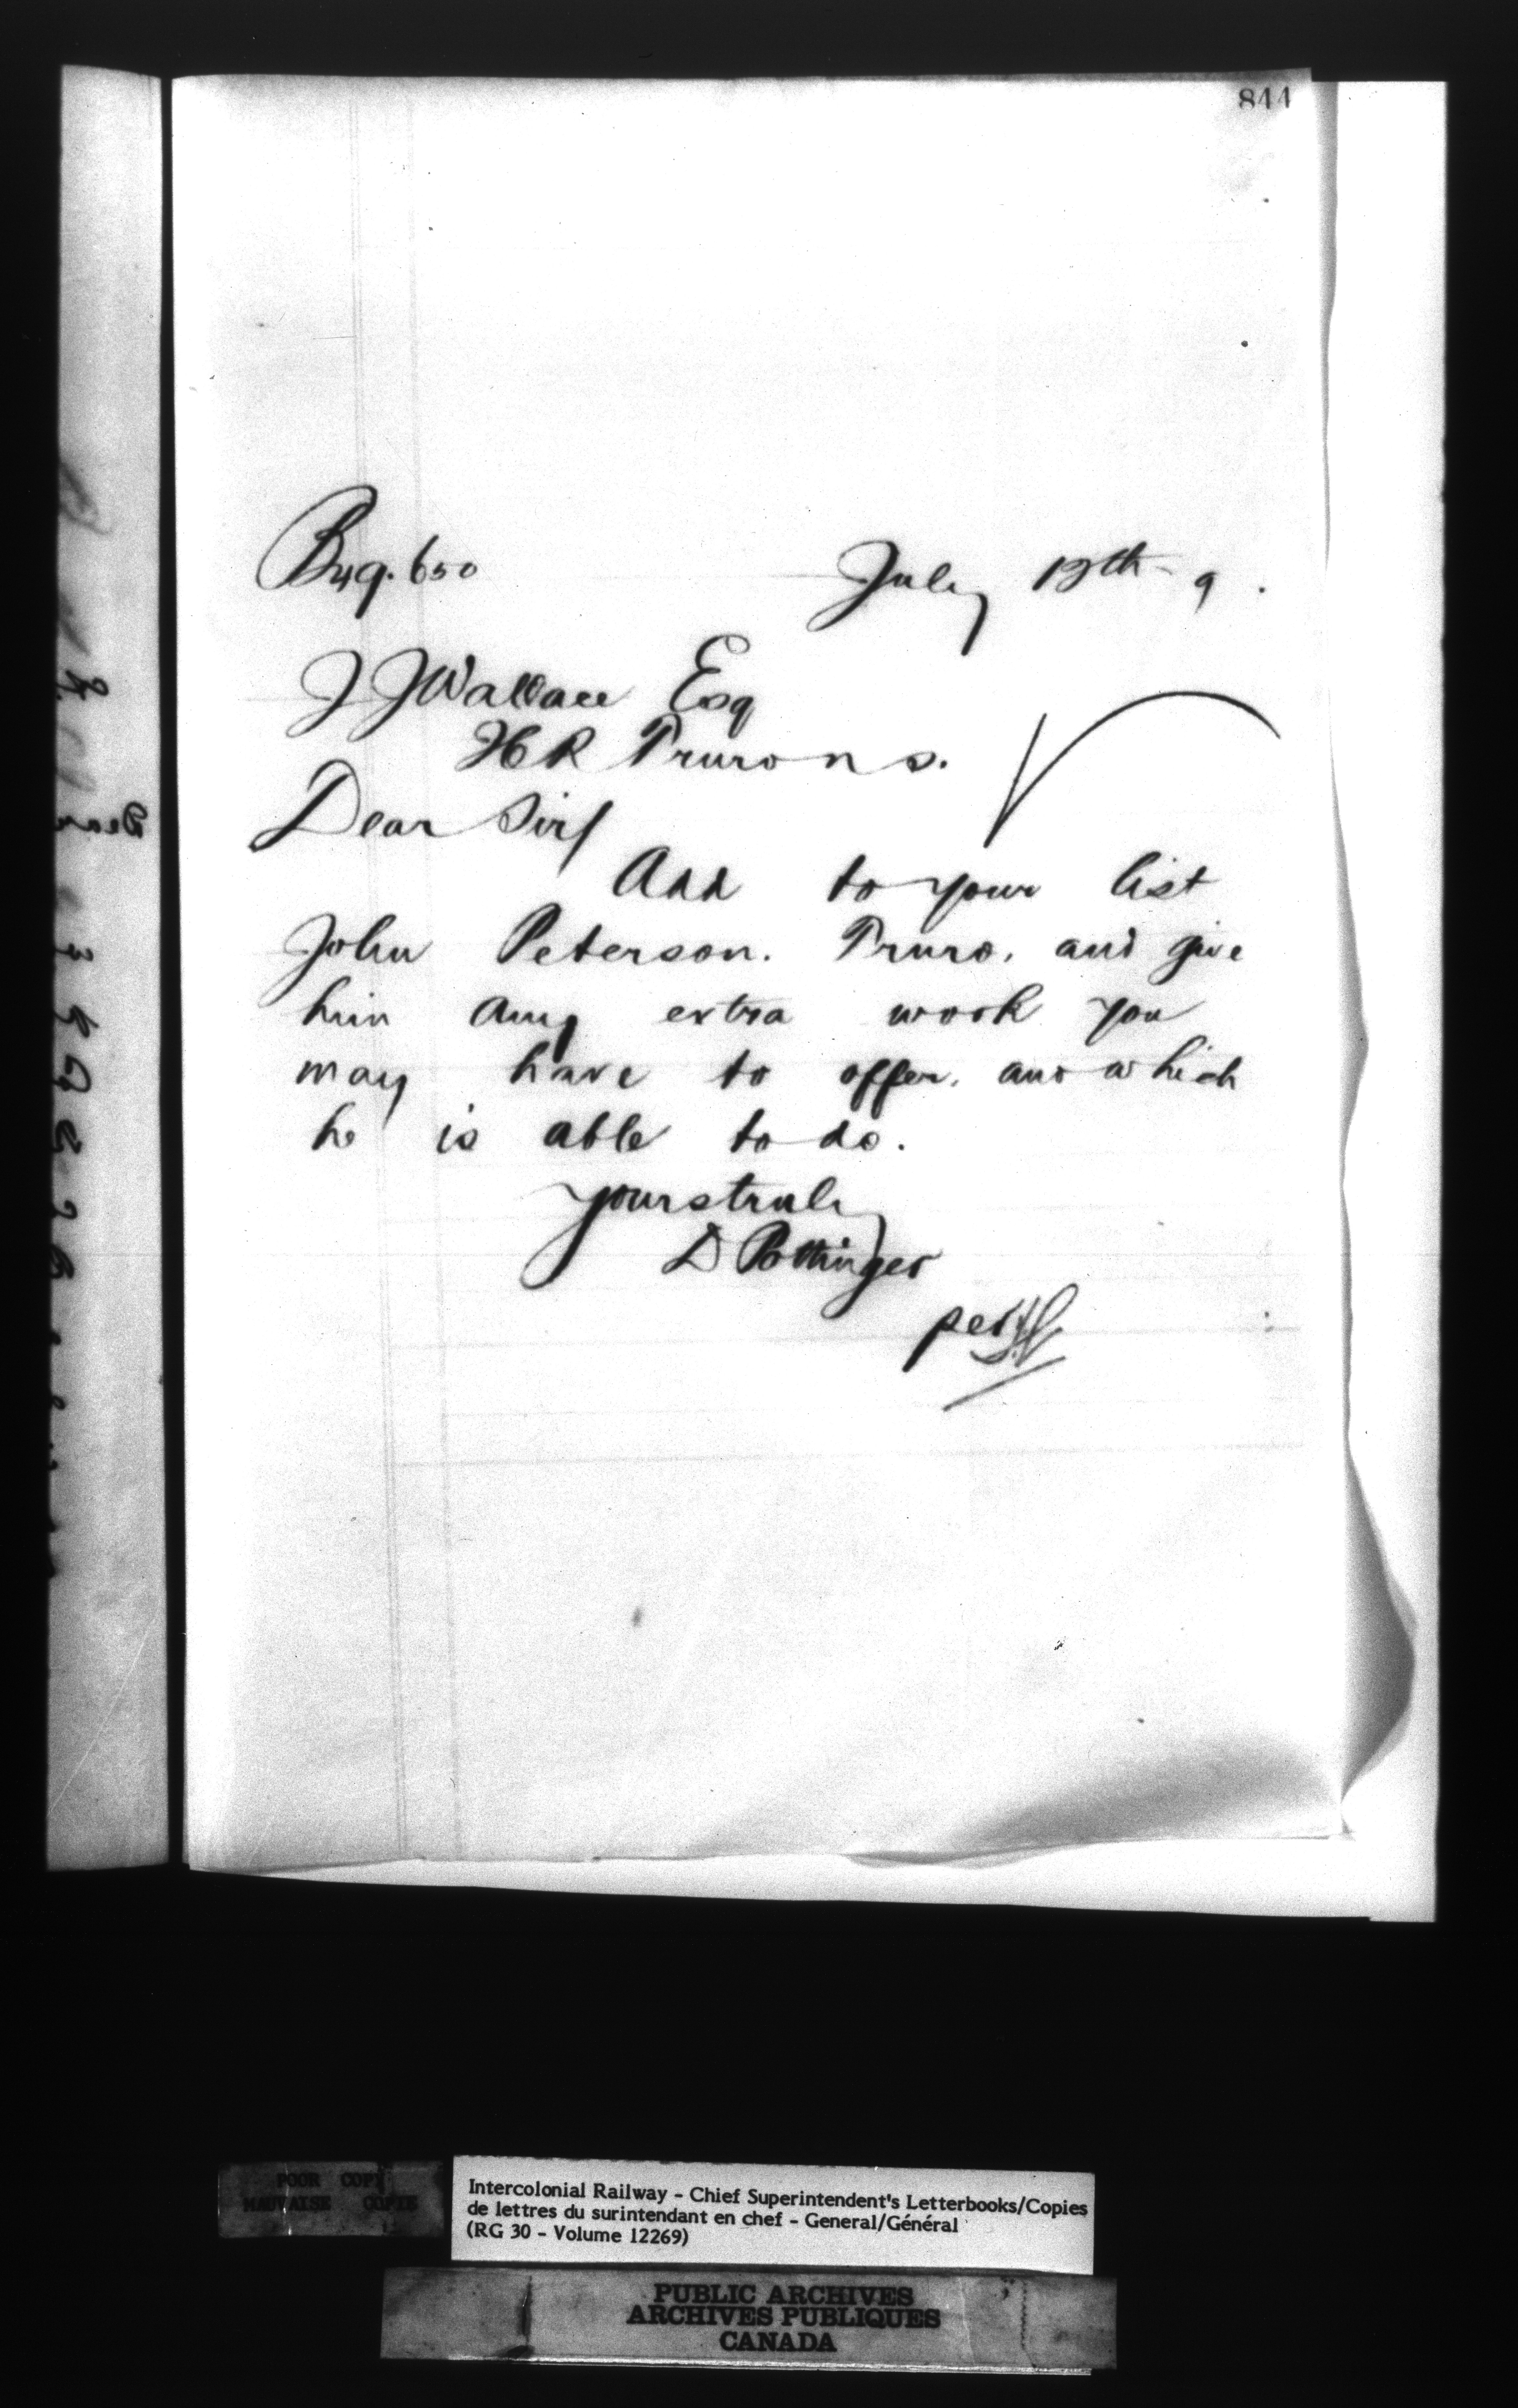 844
Bng. 650 July 12th - 9.
J J Wallace Esq
H R Truro N S.
Dear Sir/
Add to your list
John Peterson. Truro, and give
him any extra work you
may have to offer, and which
he is able to do.
yours truly
D Pottinger
per
POOR COPY
MAUVAISE COPIE
Intercolonial Railway - Chief Superintendent's Letterbooks/Copies
de lettres du surintendant en chef - General/Général
(RG 30 - Volume 12269)
PUBLIC ARCHIVES
ARCHIVES PUBLIQUES
CANADA